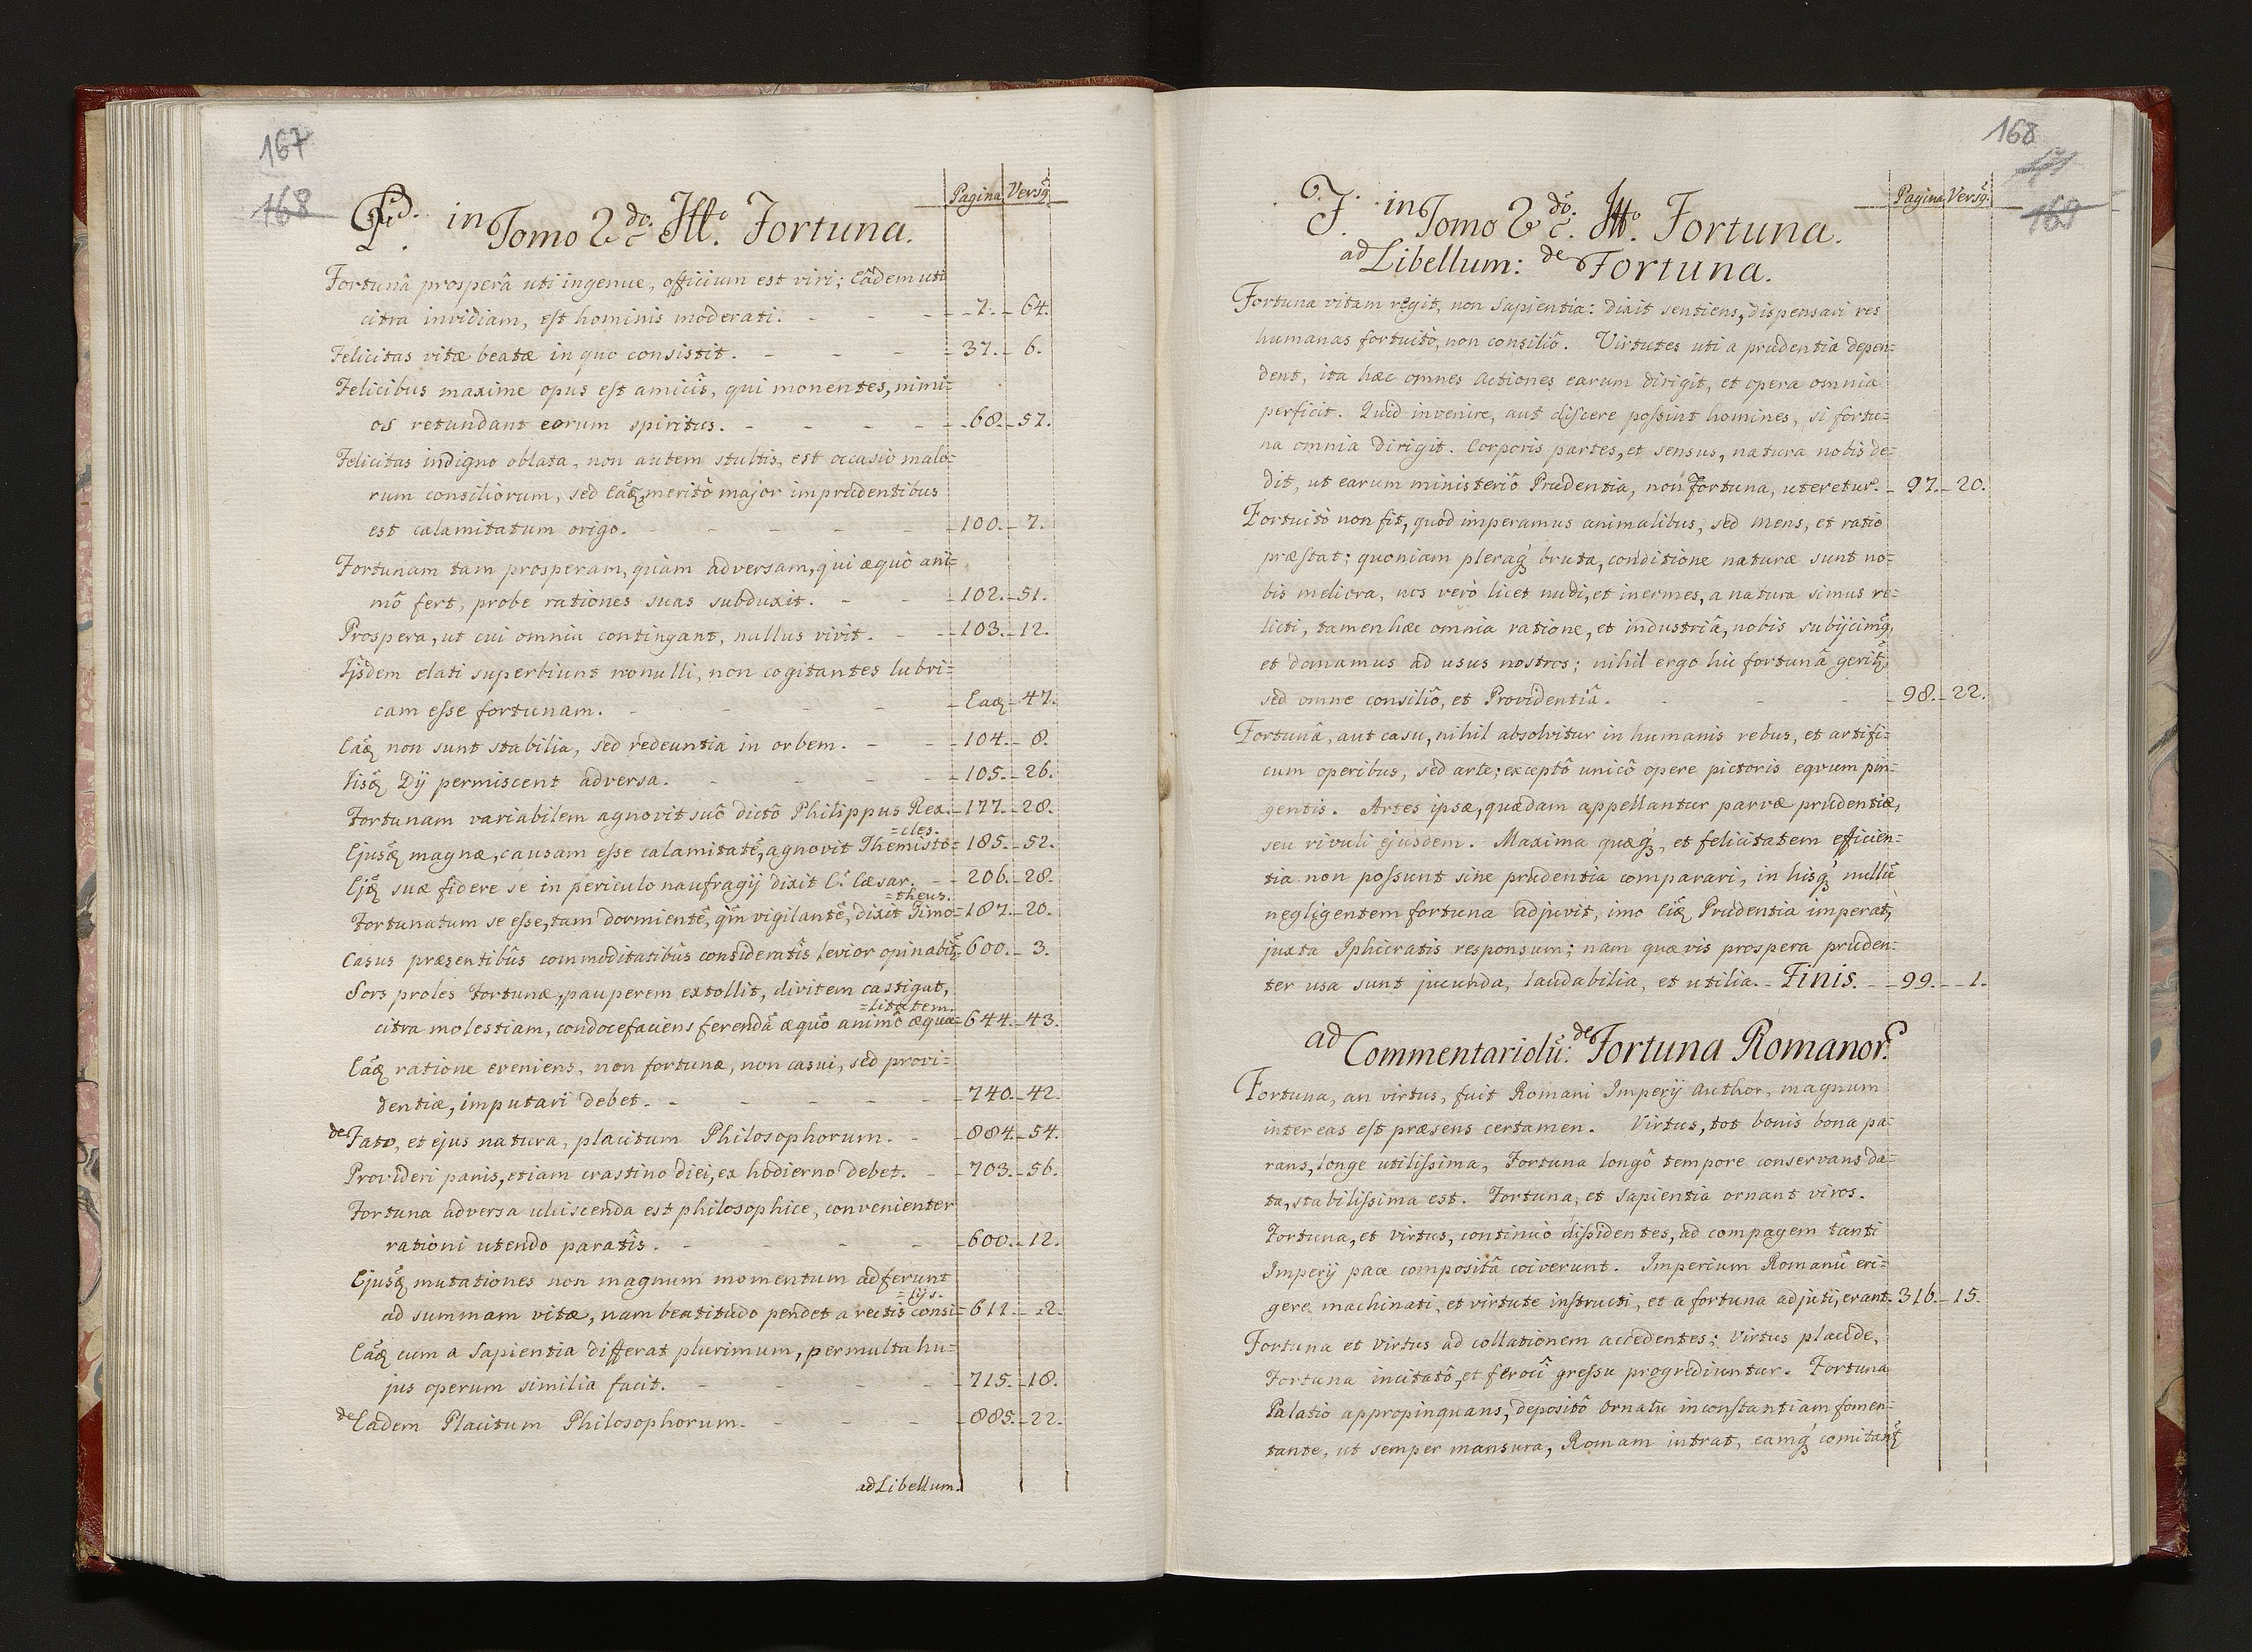 167
168
Pagina Versq̃
in Tomo 2do. Fortuna.
Fortunâ prosperâ uti ingenue, officium est viri; Eâdem uti
citra invidiam, est hominis moderati. - 7. - 64.
Felicitas vitæ beatæ in quo consistit. - 37. - 6.
Felicibus maxime opus est amicîs, qui monentes, nimi=
os retundant eorum spiritus. - 68. - 57.
Felicitas indigno oblata, non autem stultis, est occasio malo=
rum consiliorum, sed meritò major imprudentibus
est calamitatum origo. - 100. - 7.
Fortunam tam prosperam, quàm adversam, qui æquô ani=
mô fert, probe rationes suas subduxit. - 102. - 51.
Prospera, ut cui omnia contingant, nullus vivit. - 103. - 12.
Ijsdem elati superbiunt nonulli, non cogitantes lubri=
cam esse fortunam. - - 47.
non sunt stabilia, sed redeuntia in orbem. - 104. - 8.
Dij permiscent adversa. - 105. - 26.
Fortunam variabilem agnovit suô dictô Philippus Rex. - 177. - 28.
=cles.
magnæ, causam esse calamitatẽ, agnovit Themisto= 185. - 52.
suæ fidere se in periculo naufragij dixit C. Cæsar. - 206. - 28.
=theus.
Fortunatum se esse, tam dormientẽ, q̃m vigilantẽ, dixit Timo= 187. - 20.
Casus præsentibûs commoditatibûs consideratîs levior opinabitq̃ 600. - 3.
Sors proles Fortunæ, pauperem extollit, divitem castigat,
=litatem.
citra molestiam, condocefaciens ferendã æquô animô æqua= 644. - 43.
ratione eveniens, non fortunæ, non casui, sed provi=
dentiæ, imputari debet. - 740. - 42.
de Fato, et ejus natura, placitum Philosophorum. - 884. - 54.
Provideri panis, etiam crastino diei, ex hodierno debet. - 703. - 56.
Fortuna adversa ulciscenda est philosophice, convenienter
rationi utendo paratîs. - 600. - 12.
mutationes non magnum momentum adferunt
=lijs.
ad summam vitæ, nam beatitudo pendet a rectis consi= 611. - 2.
cum a Sapientia differat plurimum, permulta hu=
jus operum similia facit. - 715. - 18.
de Eadem Placitum Philosophorum. - 885. - 22.
ad Libellum.
168
169
Pagina Versq̃.
F. in Tomo 2do. Fortuna.
ad Libellum: de Fortuna.
Fortuna vitam regit, non Sapientia: dixit sentiens, dispensari res
humanas fortuitò, non consiliô. Virtutes uti a prudentia depen=
dent, ita hæc omnes Actiones earum dirigit, et opera omnia
perficit. Quid invenire, aut discere possint homines, si fortu=
na omnia dirigit. Corporis partes, et sensus, natura nobis de=
dit, ut earum ministeriô Prudentia, non Fortuna, uteretur. - 97. - 20.
Fortuitò non fit, quod imperamus animalibus, sed mens, et ratio
præstat; quoniam pleraq́ bruta, conditione naturæ sunt no=
bis meliora, nos verò licet nudi, et inermes, a natura simus re=
licti, tamen hæc omnia ratione, et industriâ, nobis subijcimq̃,
et domamus ad usus nostros; nihil ergo hic fortunâ geritq̃,
sed omne consiliô, et Providentiâ. - 98. - 22.
Fortunâ, aut casu, nihil absolvitur in humanis rebus, et artifi=
cum operibus, sed arte; exceptô unicô opere pictoris equum pin=
gentis. Artes ipsæ, quædam appellantur parvæ prudentiæ,
seu rivuli ejusdem. Maxima quæq́, et felicitatem efficien=
tia non possunt sine prudentia comparari, in hisq́ nullũ
negligentem fortuna adjuvit, imo Prudentia imperat,
juxta Iphicratis responsum; nam quævis prospera pruden=
ter usa sunt jucunda, laudabilia, et utilia. - Finis. - 99. - 1.
ad Commentariolũ: de Fortuna Romanor.
Fortuna, an virtus, fuit Romani Imperij Author, magnum
inter eas est præsens certamen. Virtus, tot bonis bona pa=
rans, longe utilissima, Fortuna longô tempore conservans da=
ta, stabilissima est. Fortuna, et Sapientia ornant viros.
Fortuna, et virtus, continuò dissidentes, ad compagem tanti
Imperij pace compositâ coiverunt. Imperium Romanũ eri=
gere machinati, et virtute instructi, et a fortuna adjuti, erant. 316. - 15.
Fortuna et virtus ad collationem accedentes; Virtus placide,
Fortuna incitatô, et ferocî gressu progrediuntur. Fortuna
Palatio appropinquans, depositô ornatu inconstantiam fomen=
tante, ut semper mansura, Romam intrat, eamq́ comitantq̃